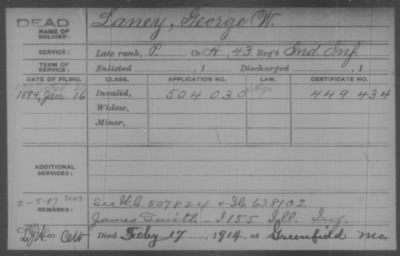 DEAD
NAME OF SOLDIER: Laney, George W.
SERVICE: Late rank, P. Co. H, 43 Reg't Ind. Inf.
TERM OF SERVICE: Enlisted , 1 Discharged , 1
DATE OF FILING. CLASS. APPLICATION NO. LAW. CERTIFICATE NO.
1884, Jan 16 Invalid, 504 030 449 434
Widow,
Minor,
ADDITIONAL SERVICES:
REMARKS: See 507824 638102
James Smith - I 155 Ill. Inf.
Died Feby 17 1914, at Greenfield Mo